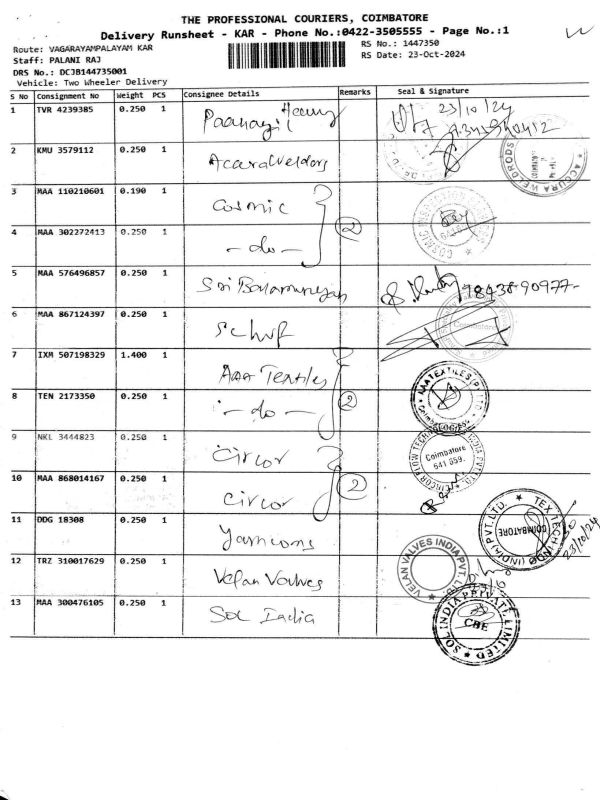 THE PROFESSIONAL COURIERS, COIMBATORE
Delivery Runsheet - KAR - Phone No.:0422-3505555 - Page No.:1
Route: VAGARAYAMPALAYAM KAR
RS No.: 1447350
Staff: PALANI RAJ
RS Date: 23-Oct-2024
DRS No.: DCJB144735001
Vehicle: Two Wheeler Delivery
S No Consignment No Weight PCS Consignee Details Remarks Seal & Signature
1 TVR 4239385 0.250 1 23/10/24
2 KMU 3579112 0.250 1 Accuraweldors ACCURA WELDRODS
3 MAA 110210601 0.190 1 Cosmic COSMIC
4 MAA 302272413 0.250 1 - do - 2
5 MAA 576496857 0.250 1 Sri Balamurugan 98438-90977-
6 MAA 867124397 0.250 1 Schuf Coimbatore
7 IXM 507198329 1.400 1 AAA Textiles
8 TEN 2173350 0.250 1 - do - 2 AAA TEXTILES (P) LTD Coimbatore
9 NKL 3444823 0.250 1 Circor CIRCOR FLOW TECHNOLOGIES INDIA PVT LTD Coimbatore 641 659.
10 MAA 868014167 0.250 1 Circor 2
11 DDG 18308 0.250 1 Yarncoms TEX TECH INDO (INDIA) PVT.LTD. COIMBATORE 23/10/24
12 TRZ 310017629 0.250 1 Velan Valves VELAN VALVES INDIA PVT. LTD.
13 MAA 300476105 0.250 1 Sol India SOL INDIA PRIVATE LIMITED CBE